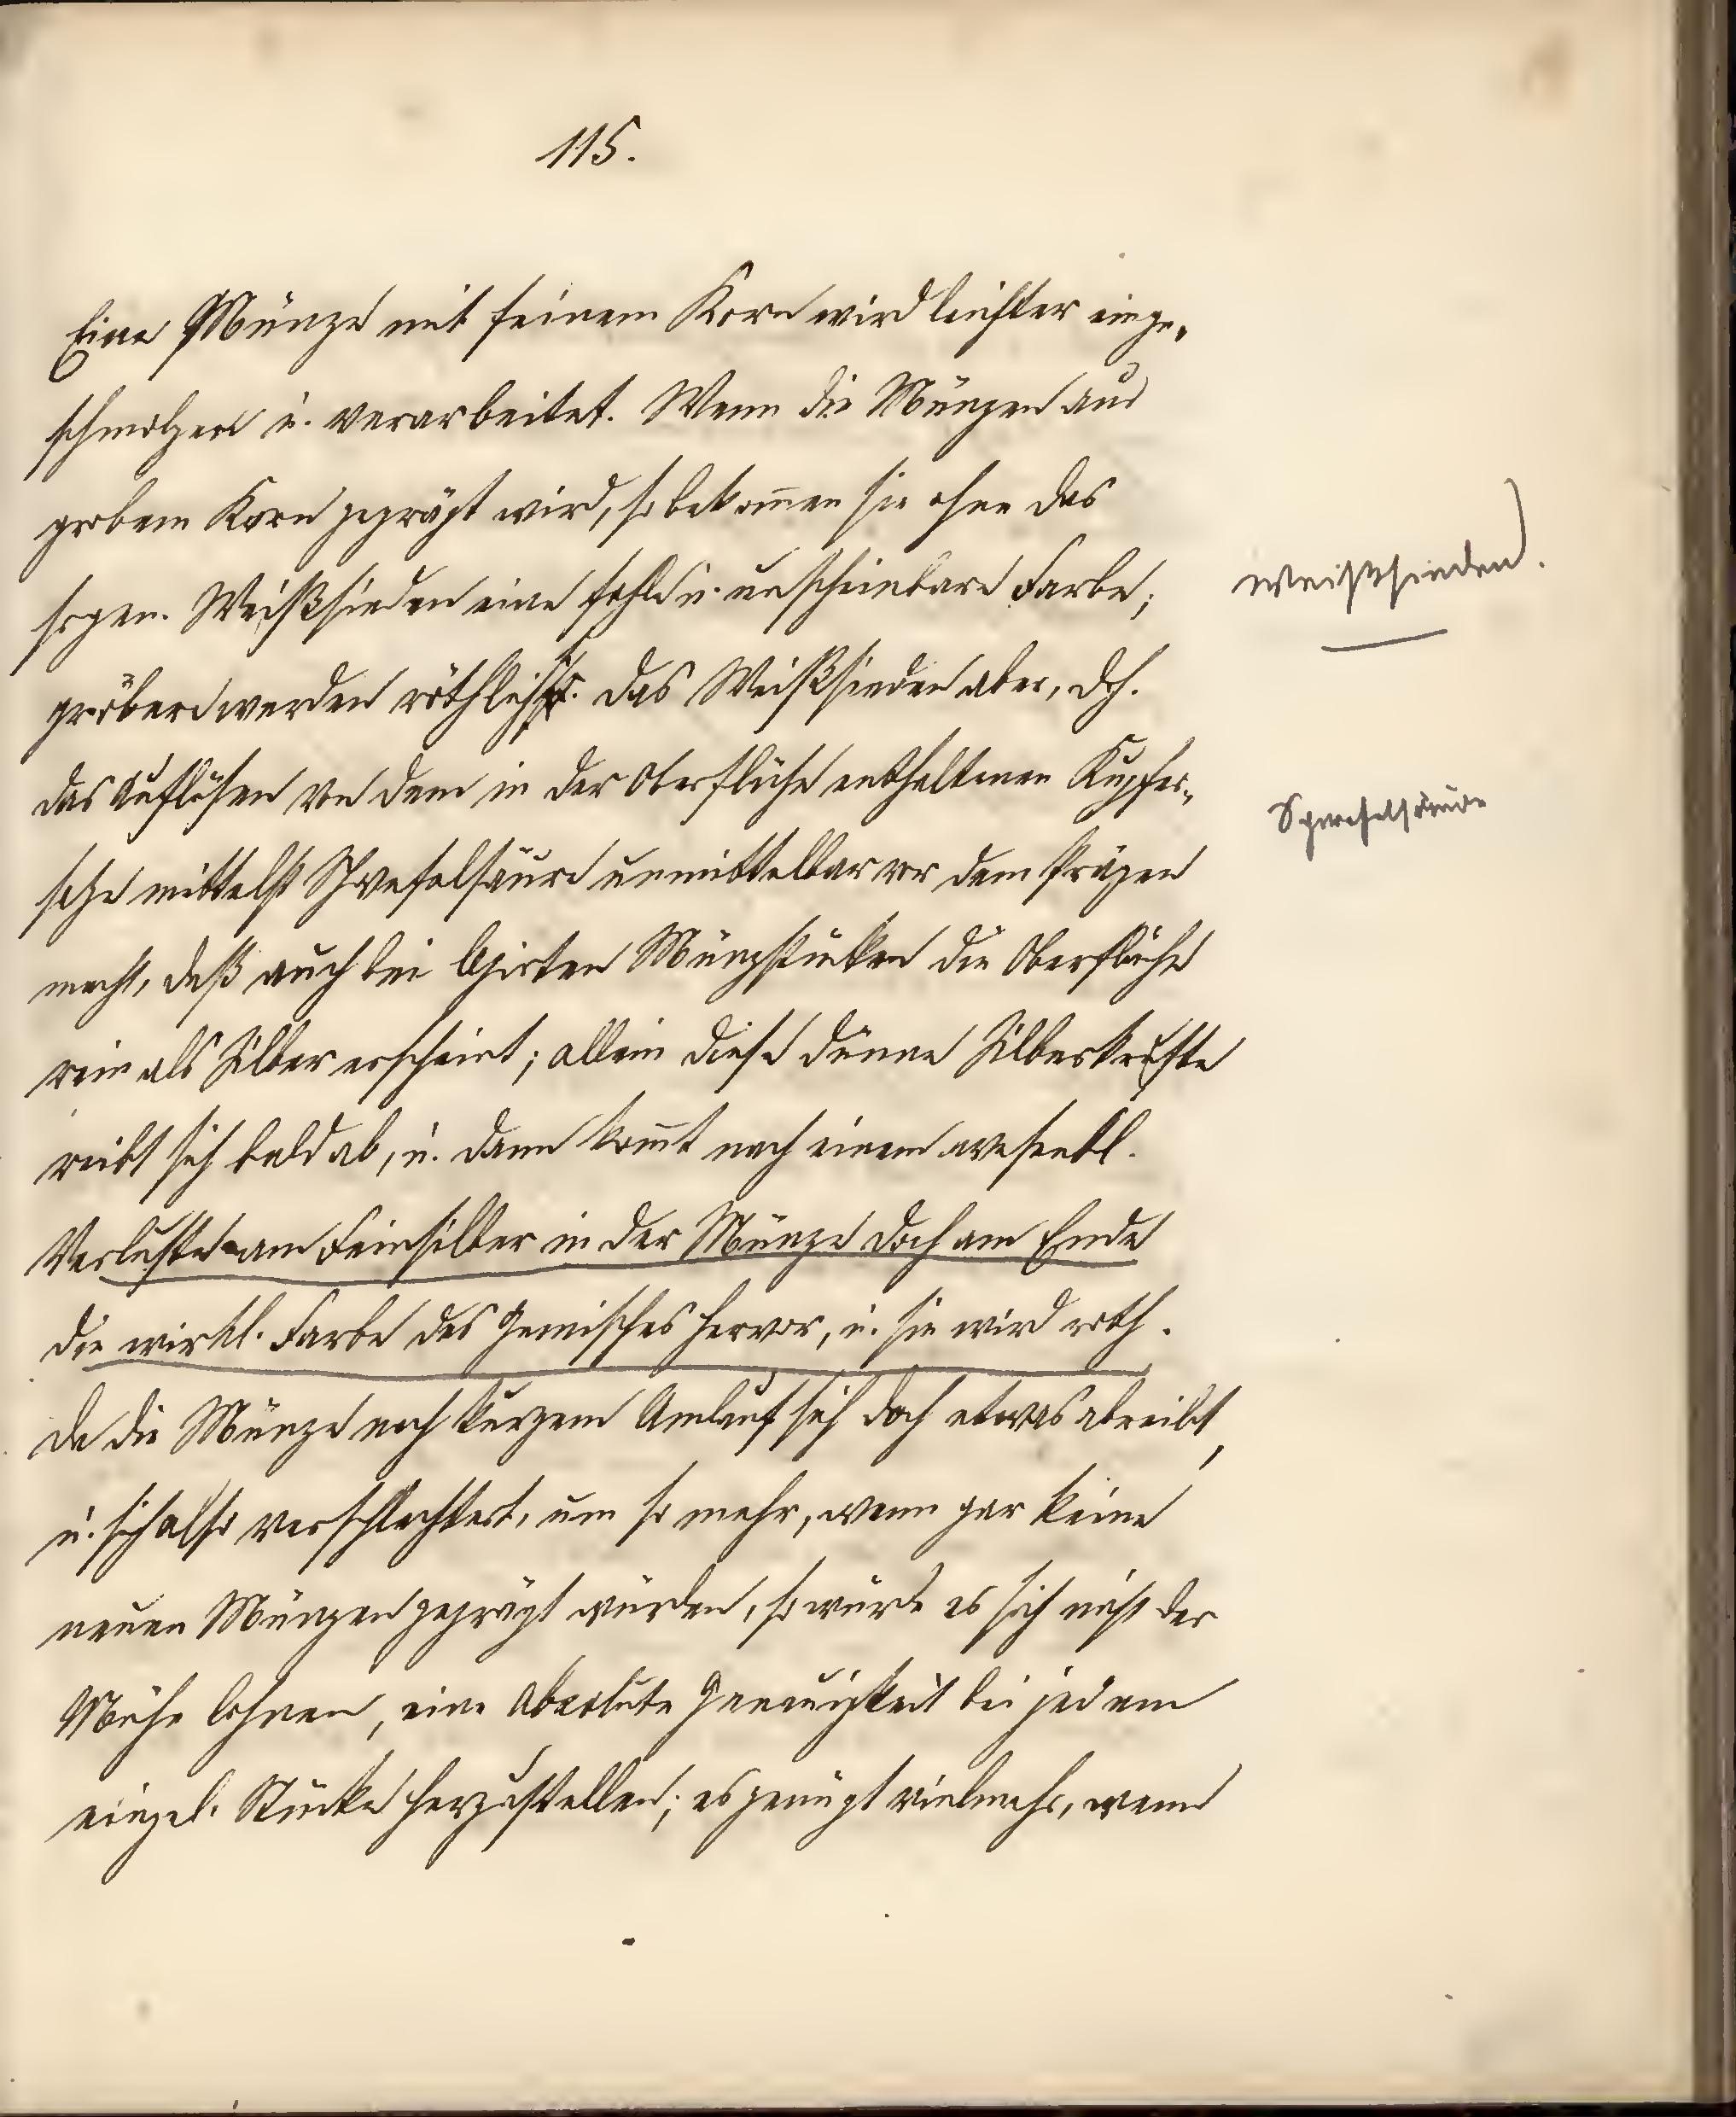 115.
Eine Münze mit feinem Korn wird leichter einge-
schmolzen u. verarbeitet. Wenn die Münzen aus
grobem Korn geprägt wird, so bekom̅en sie ohne das
sogen. Weißsieden eine fahle u. unscheinbare Farbe;
Weißsieden.
gröbere werden röthlich. Das Weißsieden aber, d.h.
das Auflösen von dem in der Oberfläche enthaltenen Kupfer-
Schwefelsäure
salze mittelst Schwefelsäure unmittelbar vor dem Prägen
macht, daß auch bei legirten Münzstücken die Oberfläche
rein als Silber erscheint; allein diese dünne Silberkruste
reibt sich bald ab, u. dann kom̅t nach einem wesentl.
Verluste am Feinsilber in der Münze doch am Ende
die wirkl. Farbe des Gemisches hervor, u. sie wird roth.
Da die Münze nach kurzem Umlauf sich doch etwas abreibt,
u. sich also verschlechtert, um so mehr, wenn gar keine
neuen Münzen geprägt würden, so würde es sich nicht der
Mühe lohnen, eine absolute Genauigkeit bei jedem
einzel. Stücke herzustellen; es genügt vielmehr, wenn